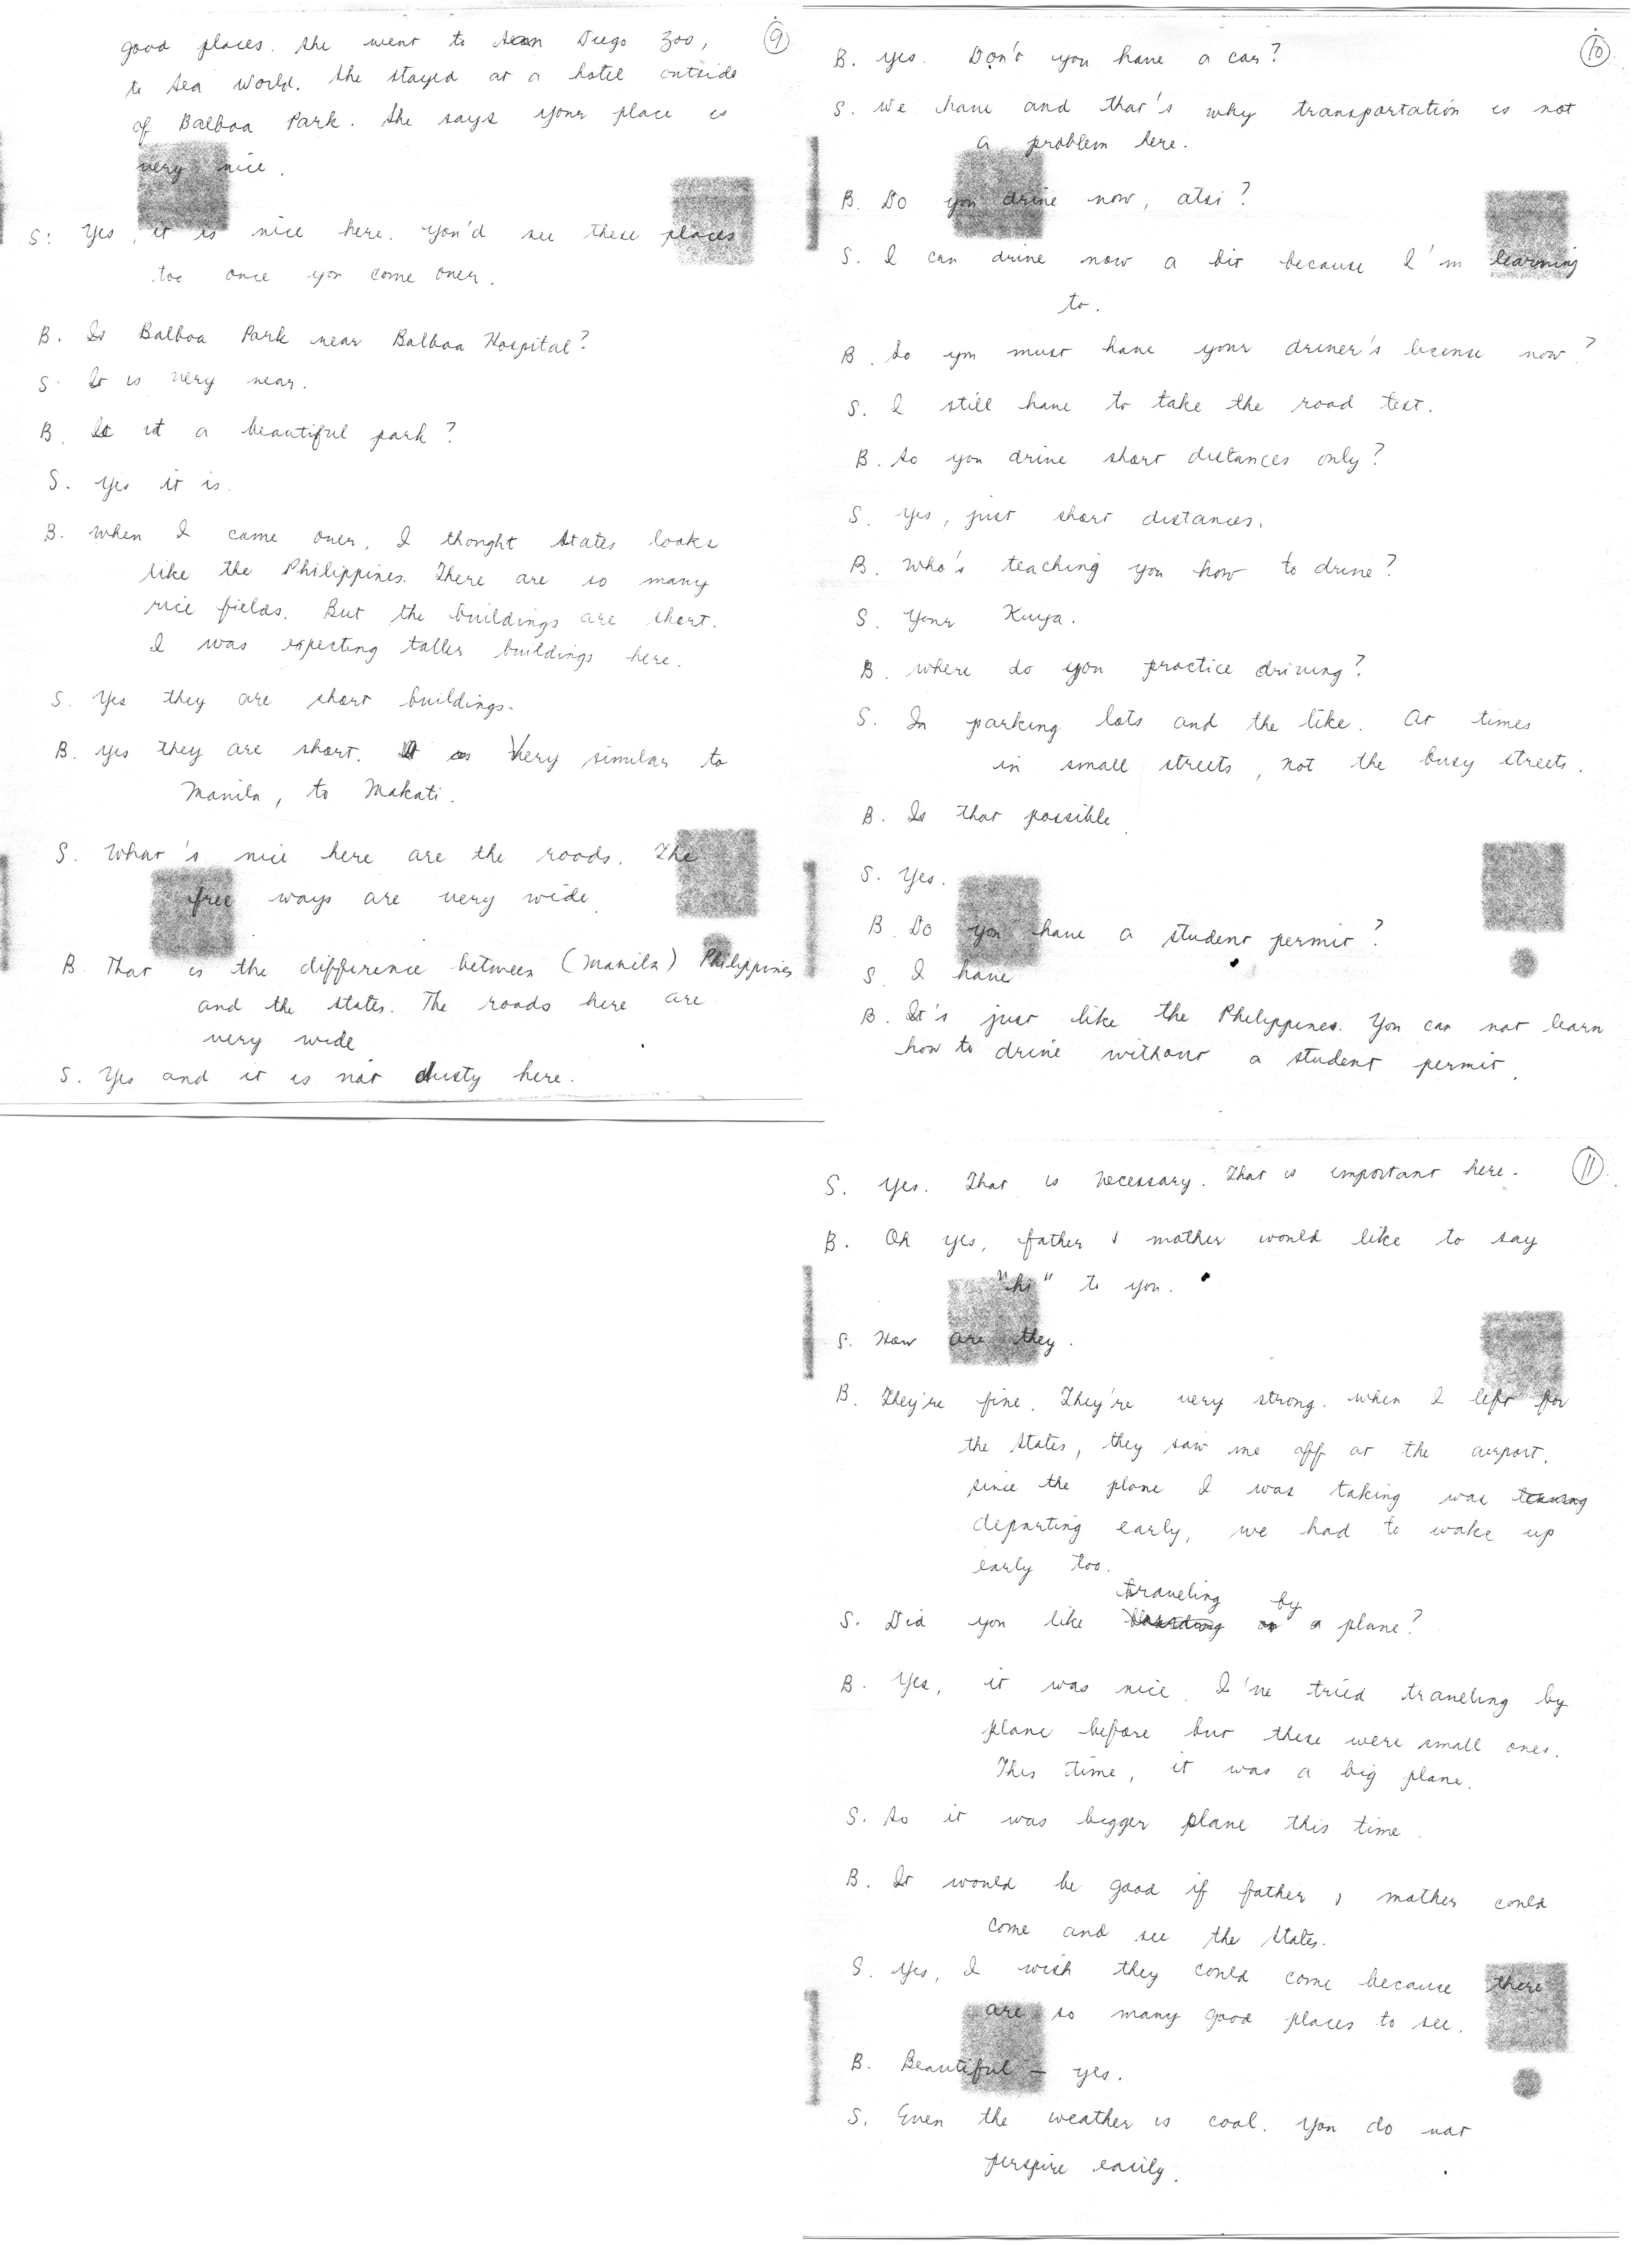 9
good places. She went to San Diego Zoo,
to Sea World. She stayed at a hotel outside
of Balboa Park. She says your place is
very nice.
S: Yes, it is nice here. You'd see these places
too once you come over.
B. Is Balboa Park near Balboa Hospital?
S. It is very near.
B. Is it a beautiful park?
S. Yes it is.
B. When I came over, I thought States looks
like the Philippines. There are so many
rice fields. But the buildings are short.
I was expecting taller buildings here.
S. Yes they are short buildings.
B. Yes they are short. Very similar to
Manila, to Makati.
S. What's nice here are the roads. The
free ways are very wide.
B. That is the difference between (Manila) Philippines
and the States. The roads here are
very wide
S. Yes and it is not dusty here.
10
B. Yes. Don't you have a car?
S. We have and that's why transportation is not
a problem here.
B. Do you drive now, atsi?
S. I can drive now a bit because I'm learning
to.
B. So you must have your driver's license now?
S. I still have to take the road test.
B. So you drive short distances only?
S. Yes, just short distances.
B. Who's teaching you how to drive?
S. Your Kuya.
B. Where do you practice driving?
S. In parking lots and the like. At times
in small streets, not the busy streets.
B. Is that possible
S. Yes.
B. Do you have a student permit?
S. I have
B. It's just like the Philippines. You can not learn
how to drive without a student permit.
11
S. Yes. That is necessary. That is important here.
B. Oh yes, father & mother would like to say
"hi" to you.
S. How are they.
B. They're fine. They're very strong. When I left for
the States, they saw me off at the airport.
Since the plane I was taking was
departing early, we had to wake up
early too.
S. Did you like traveling by a plane?
B. Yes, it was nice. I've tried traveling by
plane before but these were small ones.
This time, it was a big plane.
S. So it was bigger plane this time.
B. It would be good if father & mother could
come and see the States.
S. Yes, I wish they could come because there
are so many good places to see.
B. Beautiful – yes.
S. Even the weather is cool. You do not
perspire easily.